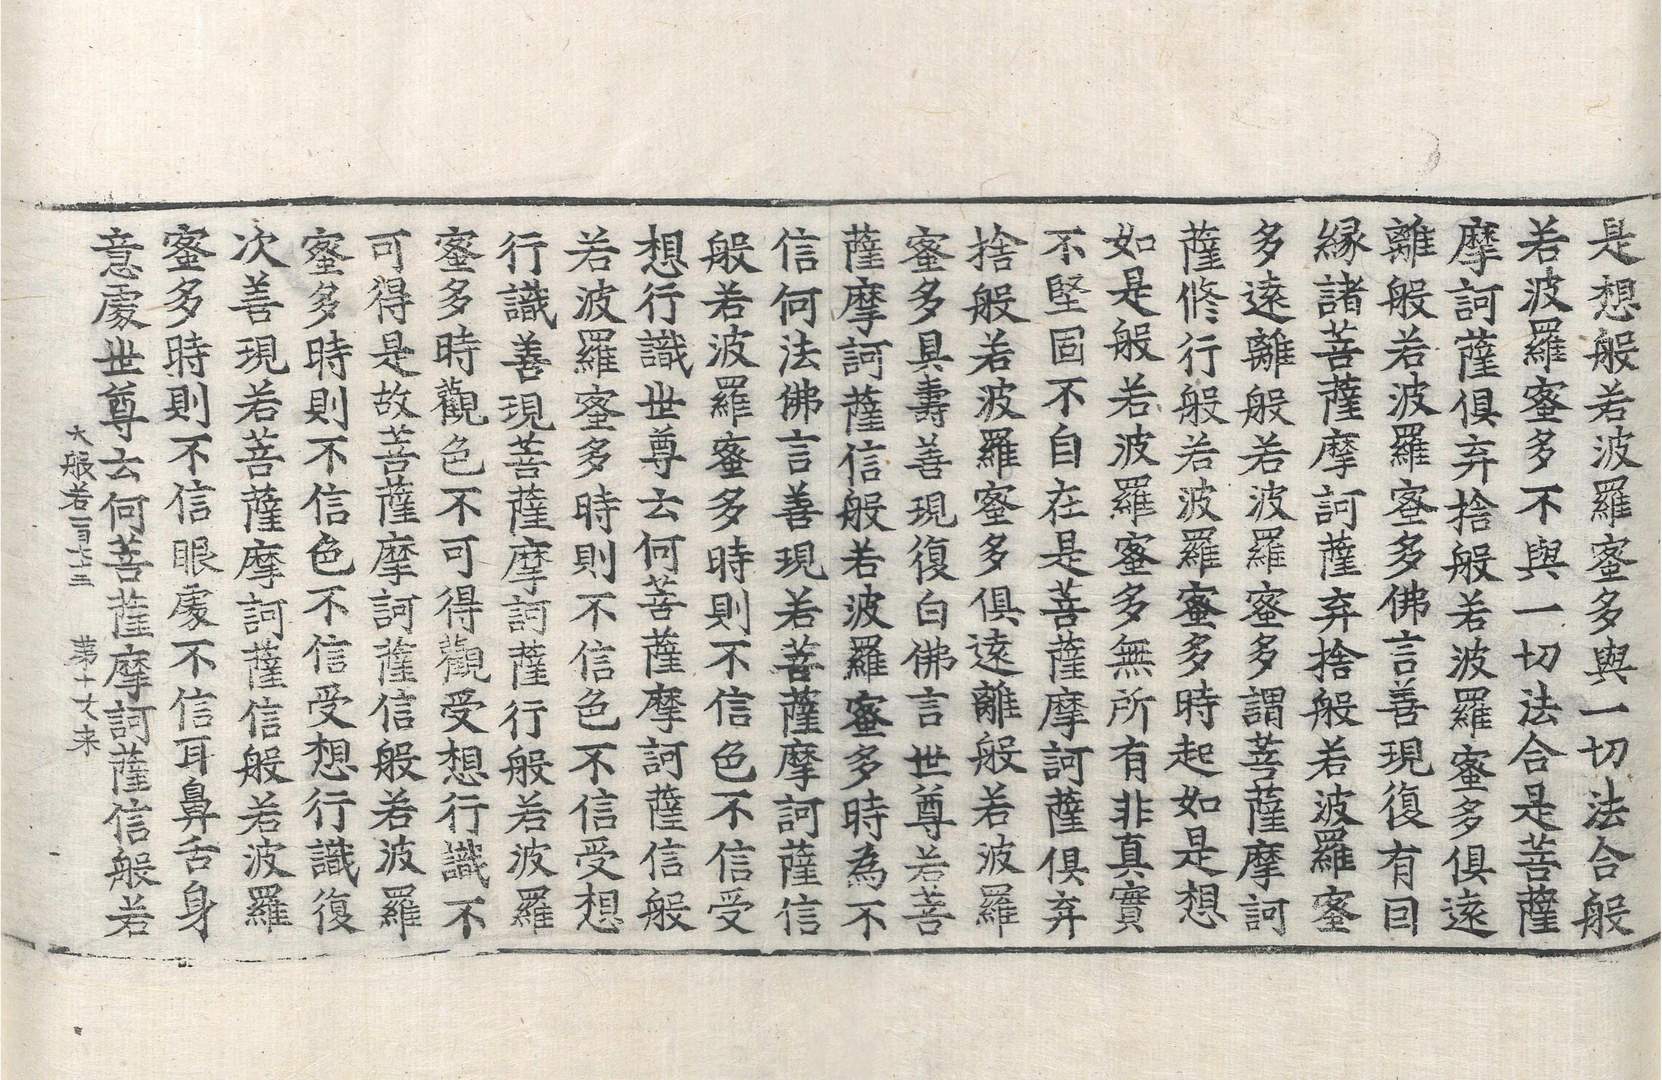 是想般若波羅蜜多與一切法合般
若波羅蜜多不與一切法合是菩薩
摩訶薩俱弃捨般若波羅蜜多俱遠
離般若波羅蜜多佛言善現復有因
緣諸菩薩摩訶薩弃捨般若波羅蜜
多遠離般若波羅蜜多謂菩薩摩訶
薩修行般若波羅蜜多時起如是想
如是般若波羅蜜多無所有非真實
不堅固不自在是菩薩摩訶薩俱弃
捨般若波羅蜜多俱遠離般若波羅
蜜多具壽善現復白佛言世尊若菩
薩摩訶薩信般若波羅蜜多時為不
信何法佛言善現若菩薩摩訶薩信
般若波羅蜜多時則不信色不信受
想行識世尊云何菩薩摩訶薩信般
若波羅蜜多時則不信色不信受想
行識善現菩薩摩訶薩行般若波羅
蜜多時觀色不可得觀受想行識不
可得是故菩薩摩訶薩信般若波羅
蜜多時則不信色不信受想行識復
次善現若菩薩摩訶薩信般若波羅
蜜多時則不信眼處不信耳鼻舌身
意處世尊云何菩薩摩訶薩信般若
大般若一百七十三 第十丈 来